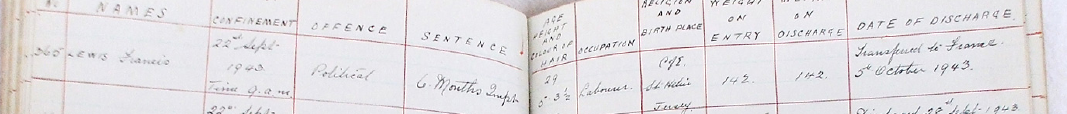 No. NAMES CONFINEMENT OFFENCE SENTENCE AGE HEIGHT AND COLOUR OF HAIR OCCUPATION RELIGION AND BIRTH PLACE WEIGHT ON ENTRY ON DISCHARGE DATE OF DISCHARGE.
365 LEWIS Francis
22nd Sept
1943
Time 9 a.m.
Political
6 Months Imph
29
5' 3½
Labourer.
C of E.
St. Helier
Jersey.
142
142.
Transferred to France.
5th October 1943.
22nd Sept
28th Sept 1943